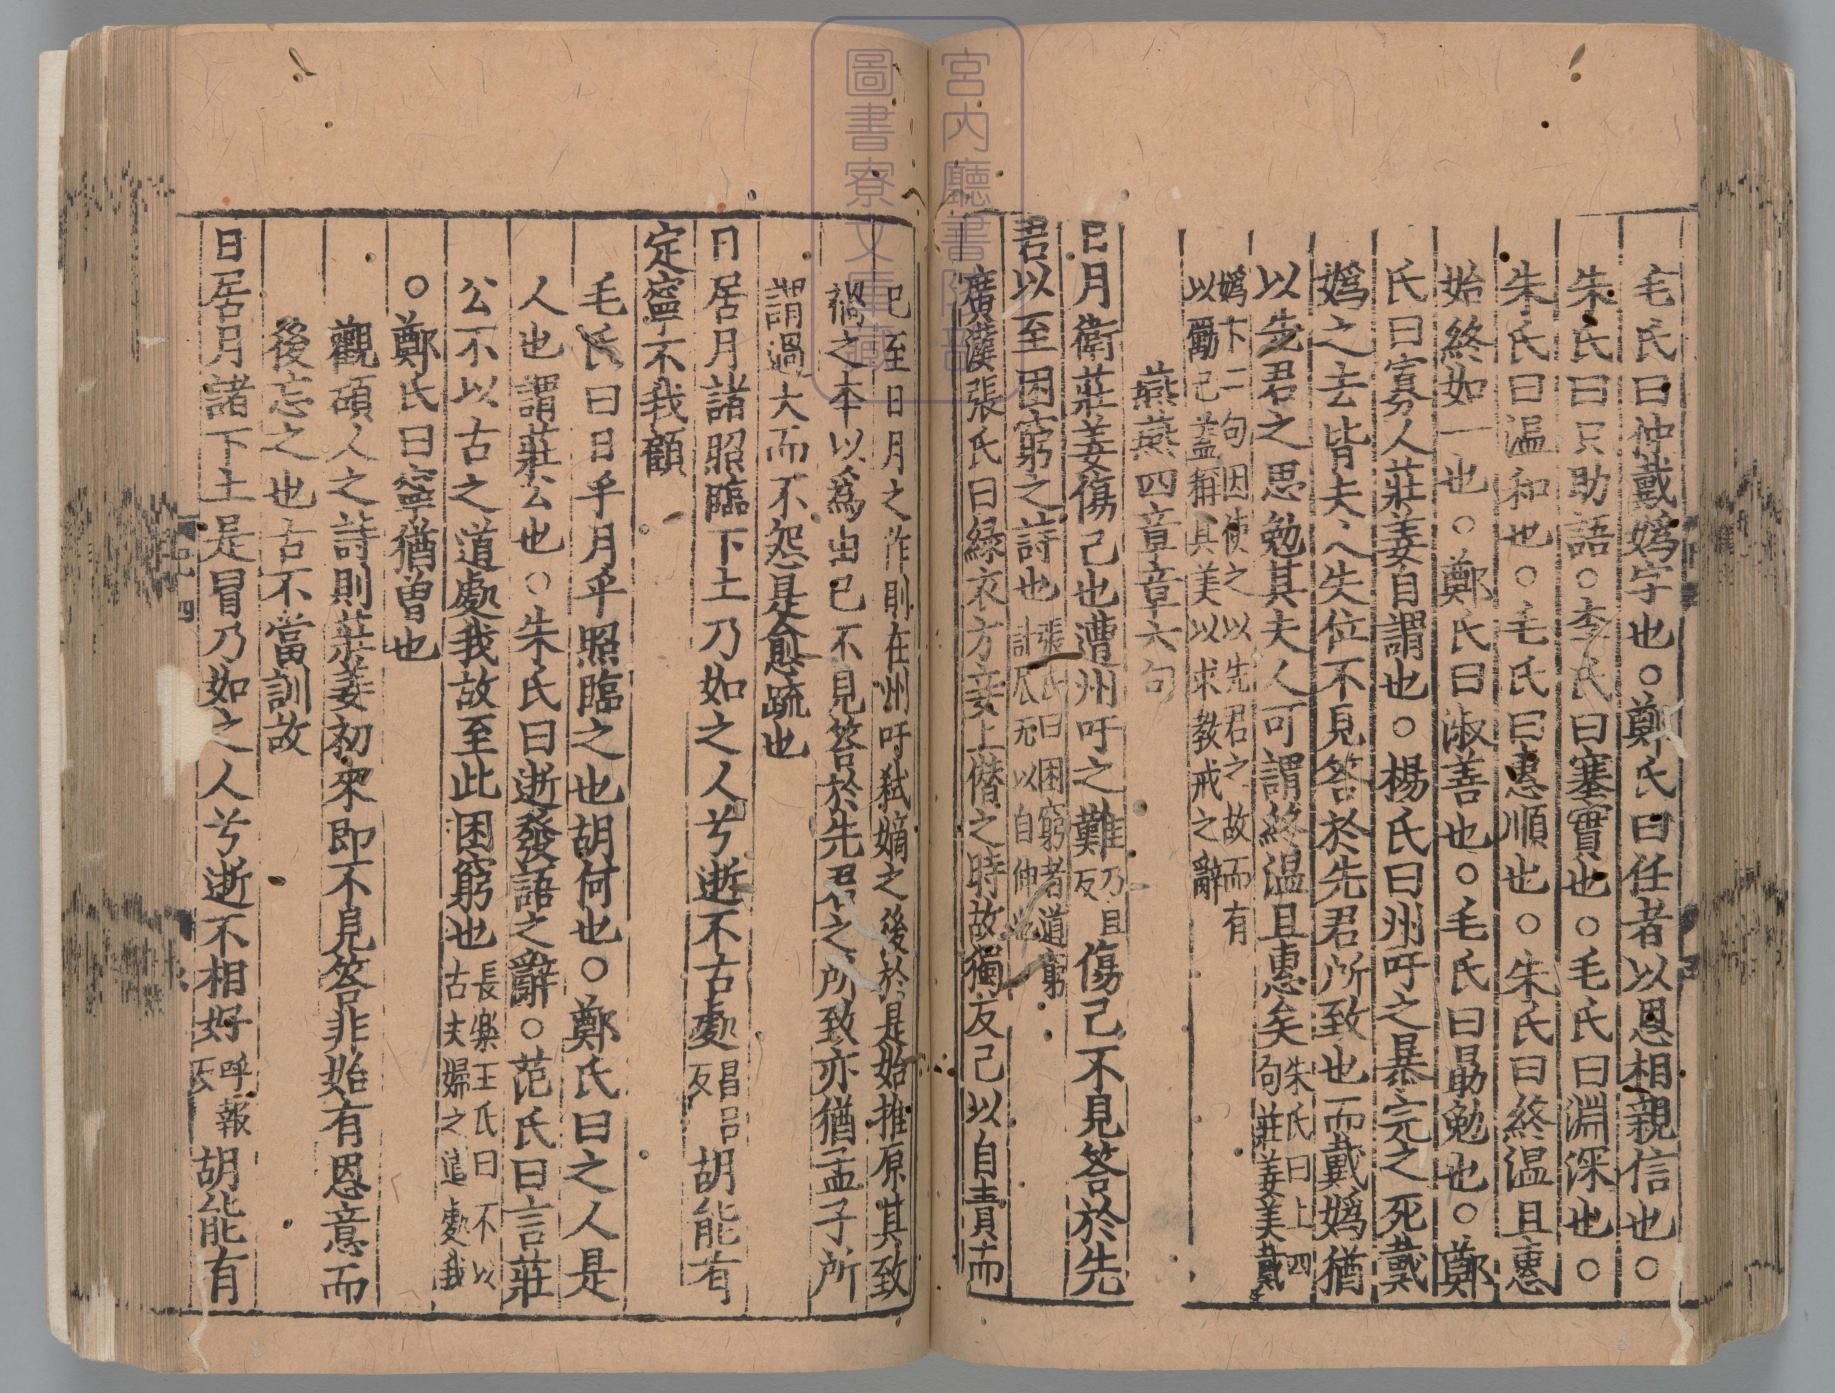 毛氏曰仲戴嬀字也○鄭氏曰任者以恩相親信也○
朱氏曰只助語○李氏曰塞實也○毛氏曰淵深也○
朱氏曰温和也○毛氏曰惠順也○朱氏曰終温且惠
始終如一也○鄭氏曰淑善也○毛氏曰勗勉也○鄭
氏曰寡人莊姜自謂也○楊氏曰州吁之暴完之死戴
嬀之去皆夫人失位不見答於先君所致也而戴嬀猶
以先君之思勉其夫人可謂終温且惠矣朱氏曰上四句莊姜美戴
嬀下二句因使之以先君之故而有以勵己蓋稱其美以求敎戒之辭
燕燕四章章六句
日月衛莊姜傷己也遭州吁之難乃旦反傷己不見答於先
君以至困窮之詩也張氏曰困窮者道窮計瓜无以自伸
廣漢張氏曰緑衣方妾上僭之時故獨反己以自責而
已至日月之作則在州吁弑嫡之後於是始推原其致
禍之本以爲由已不見答於先君之所致亦猶孟子所
謂過大而不怨是愈疏也
日居月諸照臨下土乃如之人兮逝不古處昌呂反胡能有
定寧不我顧
毛氏曰日乎月乎照臨之也胡何也○鄭氏曰之人是
人也謂莊公也○朱氏曰逝發語之辭○范氏曰言莊
公不以古之道處我故至此困窮也長樂王氏曰不以古夫婦之道處我
○鄭氏曰寧猶曾也
觀碩人之詩則莊姜初來即不見答非始有恩意而
後忘之也古不當訓故
日居月諸下土是冒乃如之人兮逝不相好呼報反胡能有
宮内廳書陵部
圖書寮文庫藏